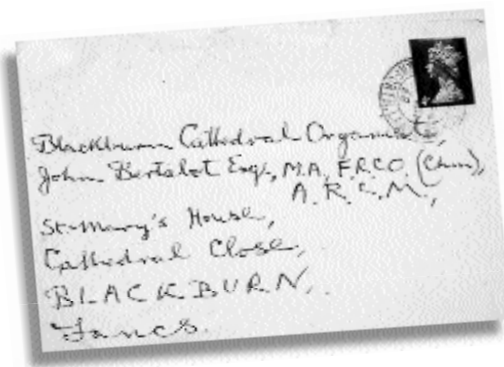 Blackburn Cathedral Organist,
John Bertalot Esq., M.A., F.R.C.O. (Chm),
A.R.C.M.,
St. Mary's House,
Cathedral Close,
BLACKBURN,
Lancs.